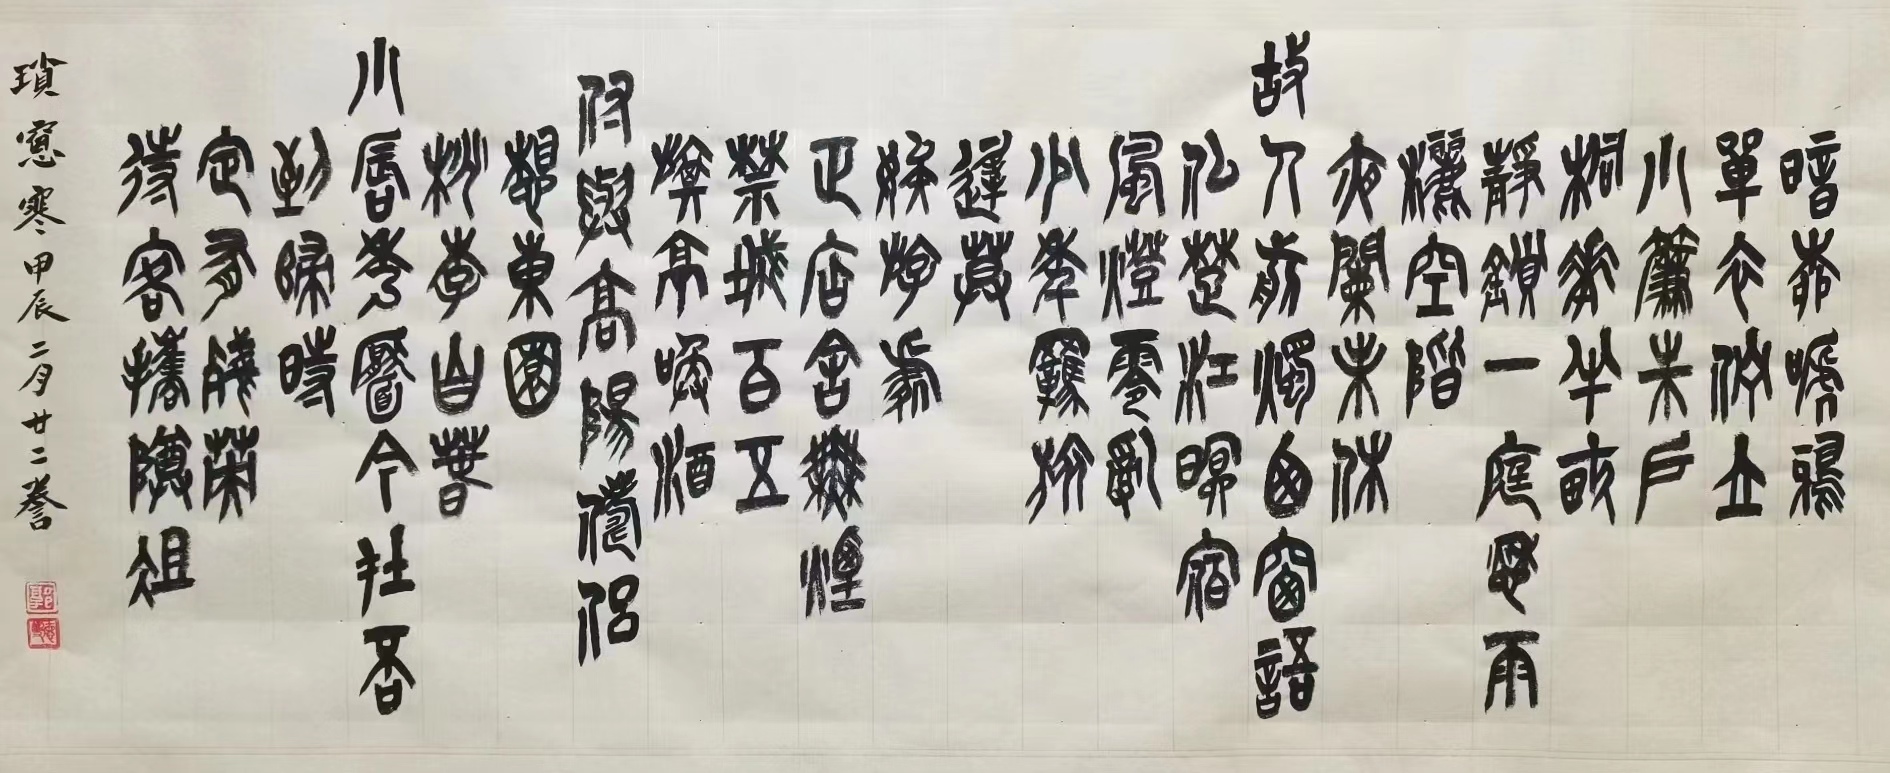 暗柳啼鴉
單衣佇立
小簾朱戶
桐花半畝
靜鎖一庭愁雨
灑空階
夜闌未休
故人剪燭西窗語
似楚江暝宿
風燈零亂
少年羈旅
遲暮
嬉遊處
正店舍無煙
禁城百五
旗亭喚酒
付與高陽儔侶
想東園
桃李自春
小唇秀靨今在否
到歸時
定有殘英
待客攜尊俎
瑣窗寒 甲辰二月廿二謄